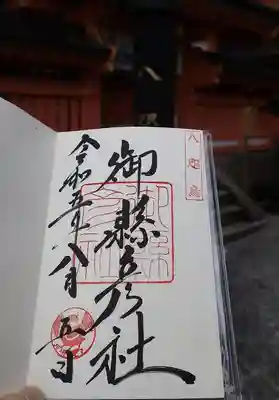 八咫烏
御縣彦社
令和五年八月五日